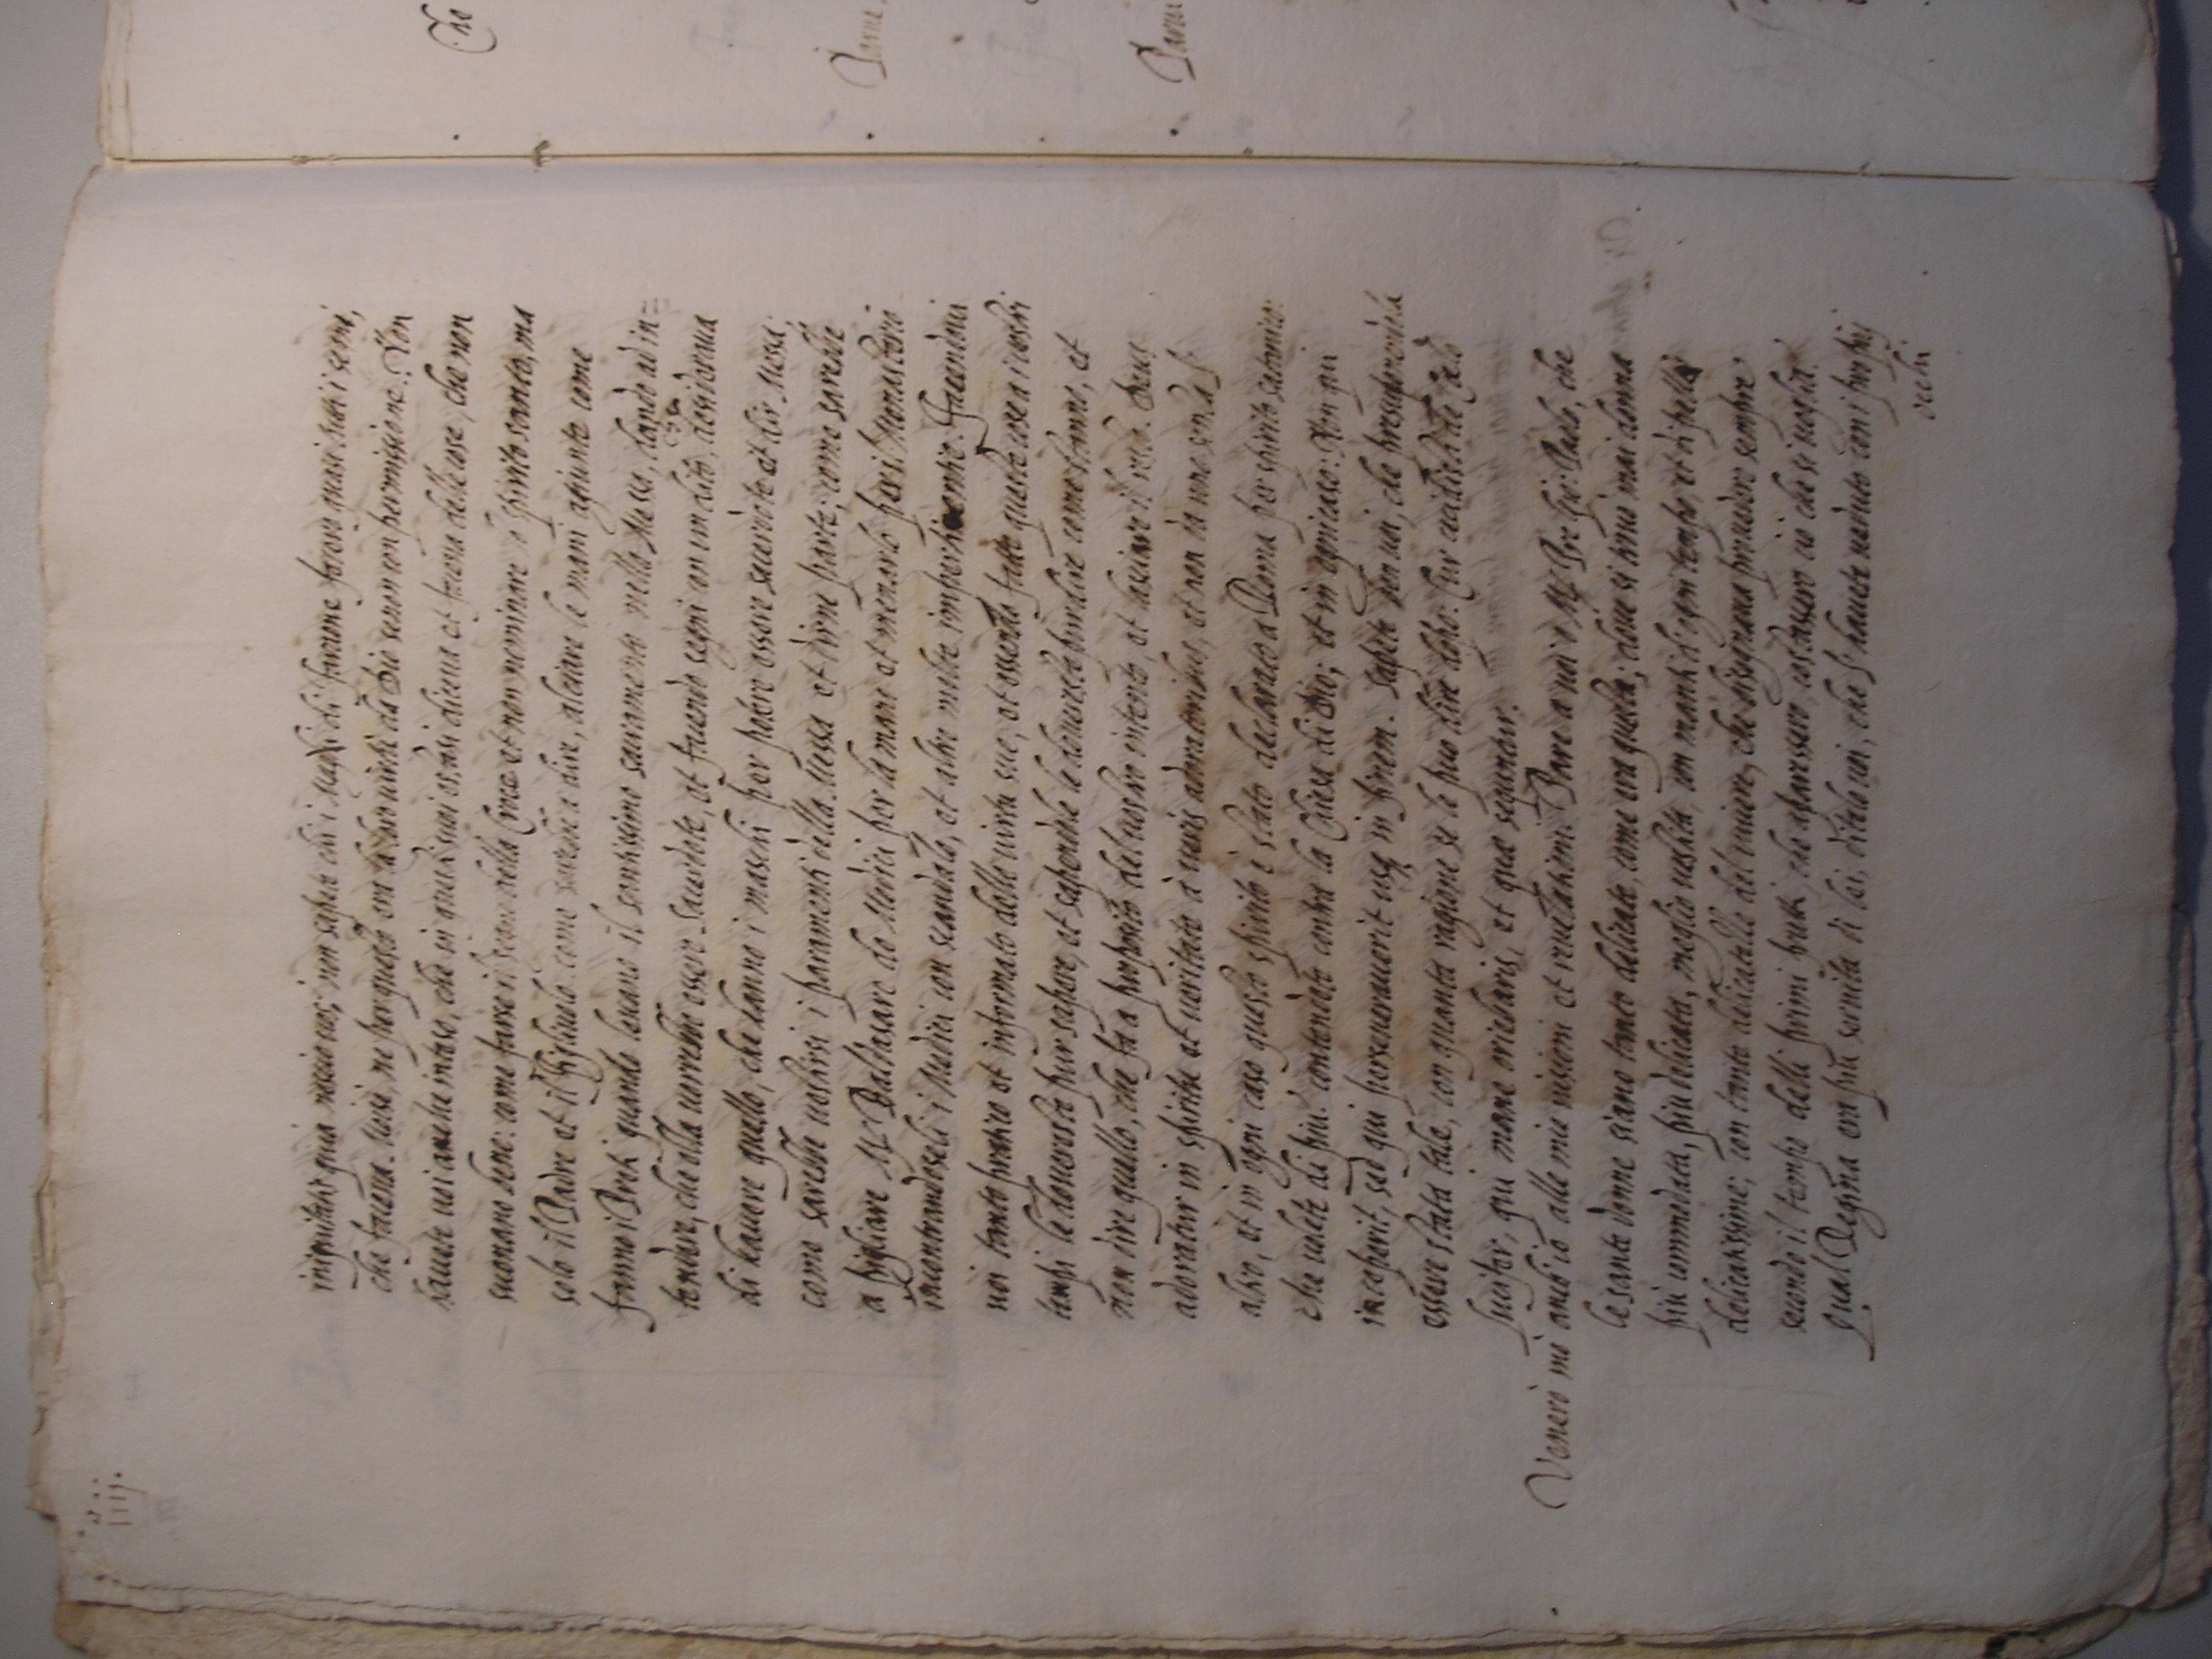 iiij.
iniquitatis quia nescio vos; non sapete che i Maghi di Faraone ferono quasi tutti i segni,
che faceva Mosè, ne per questo era la loro virtù da Dio senon con permissione. Non
havete voi anche inteso, che in questi suoi estasi diceva et faceva delle cose, che non
suonano bene: come farse il segno della Croce et non nominare o spirito santo, ma
solo il Padre et il figliuolo: come sarebbe a dire, alciare le mani agiunte come
fanno i Preti quando levano il santissimo sacramento nella Messa, dando ad in=
tendere, che ella vorrebbe essere Sacerdote, et facendo segni con un dito, desiderava
di havere quello, che hanno i maschi per potere essere sacerdote et dir Messa:
come sarebbe vestirsi i paramenti della Messa et dirne parte; come sarebbe
a pigliare M. Baldasare de Medici per la mano et menarlo per il Monasterio
incontrandoseli i Medici con scandalo, et altre molte impertinentie. Facendomi
voi tanto pratico et informato delle virtù sue, et essendo fatte queste cose a i vostri
tempi le dovereste pur sapere, et sapendole le dovereste predicare come stanno, et
non dire quello, che fa a proposito del vostro intento, et lasciare il resto. Deus
adoratur in spiritu et veritate a veris adoratoribus, et non in
altro, et in ogni caso questo spirito è stato dechiarato a Roma per spirito satanico:
che volete di più. contendete contra la Chiesa di Dio; et in
inceperit, sed qui perseveraverit usque in finem. sapete ben voi, che presupponendola
essere stata tale, con quanta ragione se le puo dire
lucifer, qui mane oriebaris, et quae sequuntur.
Venerò mo anch'io alle mie visioni et revelationi. Pare a voi o M. Pre Gio: Paulo, che
le sante donne siano tanto delicate, come era questa; dove si trovò mai donna
più commodata, più delicata, meglio vestita, con manti d'ogni tempo, et di pelle
delicatissime; con tante delicatelle del vivere, che bisognava provedere sempre
secondo il tempo delli primi frutti, che aparessero, costassero ciò che si voglia.
qual Regina era più servita di lei, ditelo voi, che l'havete veduto con i proprij
ochi